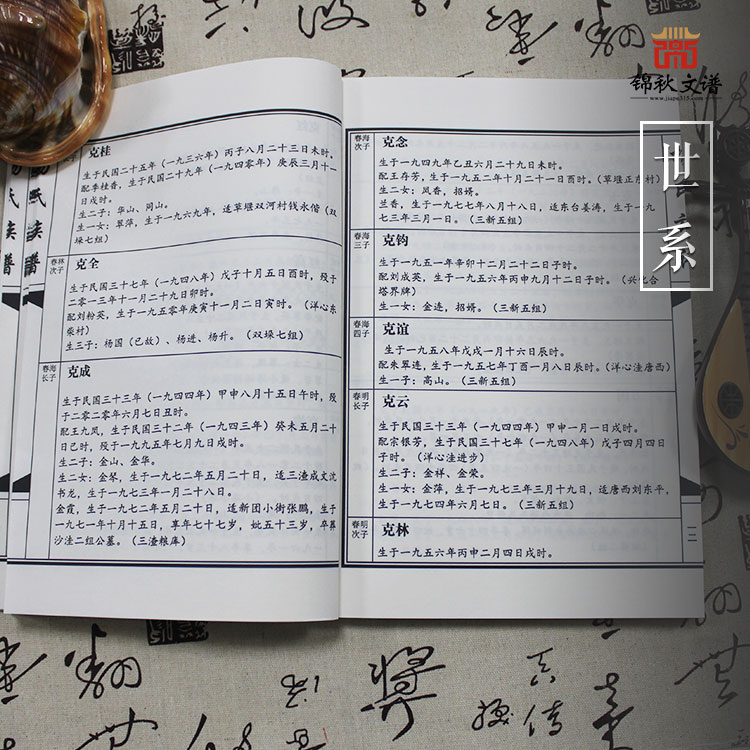 锦秋文谱
www.jiapu315.com
世系
氏族谱
次子
克桂
生于民国二十五年（一九三六年）丙子八月二十三日未时。
配李桂香，生于民国二十九年（一九四〇年）庚辰三月十一
日戌时。
生二子：华山、同山。
生一女：翠萍，生于一九六九年，适草堰双河村钱永偕（双
垛七组）
春林
次子
克全
生于民国三十七年（一九四八年）戊子十月五日酉时，殁于
二零一三年十一月二十九日卯时。
配刘粉英，生于一九五零年庚寅十一月二日寅时。（洋心东
柴村）
生三子：杨国（已故）、杨进、杨升。（双垛七组）
春海
长子
克成
生于民国三十三年（一九四四年）甲申八月十五日午时，殁
于二零二零年六月七日丑时。
配王九凤，生于民国三十二年（一九四三年）癸未五月二十
日巳时，殁于一九九五年七月九日戌时。
生二子：金山、金华。
生二女：金琴，生于一九七二年五月二十日，适三渣成文沈
书龙，生于一九七三年一月二十八日。
金霞，生于一九七二年五月二十日，适新团小街张鹏，生于
一九七一年十月十五日，享年七十七岁，妣五十三岁，卒葬
沙洼二组公墓。（三渣粮库）
春海
次子
克念
生于一九四九年己丑六月二十九日未时。
配王存芳，生于一九五二年十月二十一日酉时。（草堰正东村）
生二女：凤香，招婿。
兰香，生于一九七七年八月十八日，适东台姜涛，生于一九
七三年三月一日。（三新五组）
春海
三子
克钧
生于一九五一年辛卯十二月二十二日子时。
配刘成英，生于一九五六年丙申九月十二日子时。（兴化合
塔界牌）
生一女：金连，招婿。（三新五组）
春海
四子
克谊
生于一九五八年戊戌一月十六日辰时。
配朱翠连，生于一九五七年丁酉一月八日辰时。（洋心洼唐西）
生一子：高山。（三新五组）
春明
长子
克云
生于民国三十三年（一九四四年）甲申一月一日戌时。
配宗银芳，生于民国三十七年（一九四八年）戊子四月四日
子时。（洋心洼进步）
生二子：金祥，金荣。
生一女：金萍，生于一九七三年三月十九日，适唐西刘东平，
生于一九七四年六月七日。（三新五组）
春明
次子
克林
生于一九五六年丙申二月四日戌时。